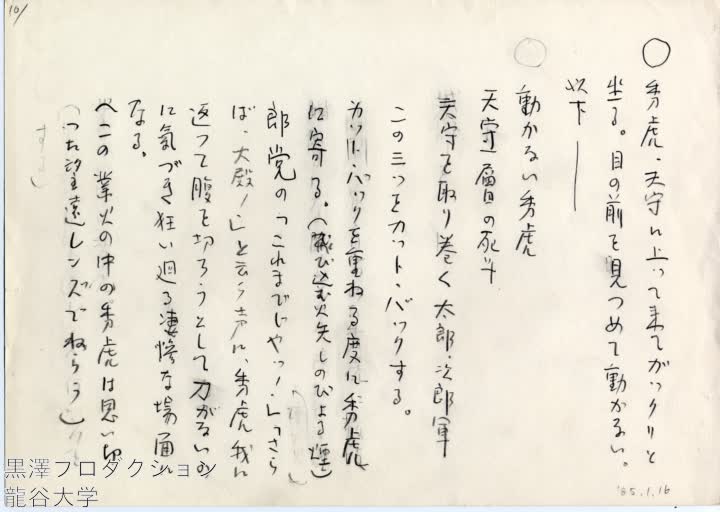 10/
○ 秀虎・天守に上って来てガックリと
坐る。目の前を見つめて動かない。
以下――
○ 動かない秀虎
天守一層目の死斗
天守を取り巻く太郎・次郎軍
この三つをカット・バックする。
カット・バックを重ねる度に秀虎
に寄る。（飛び込む火矢しのびよる煙）
郎党の「これまでじゃッ！」「さら
ば、大殿！」と云う声に、秀虎我に
返って腹を切ろうとして刀がないの
に気づき狂い廻る凄惨な場面に
なる。
（この業火の中の秀虎は思い切
った望遠レンズでねらう）
する）
'85.1.16
黒澤プロダクション
龍谷大学